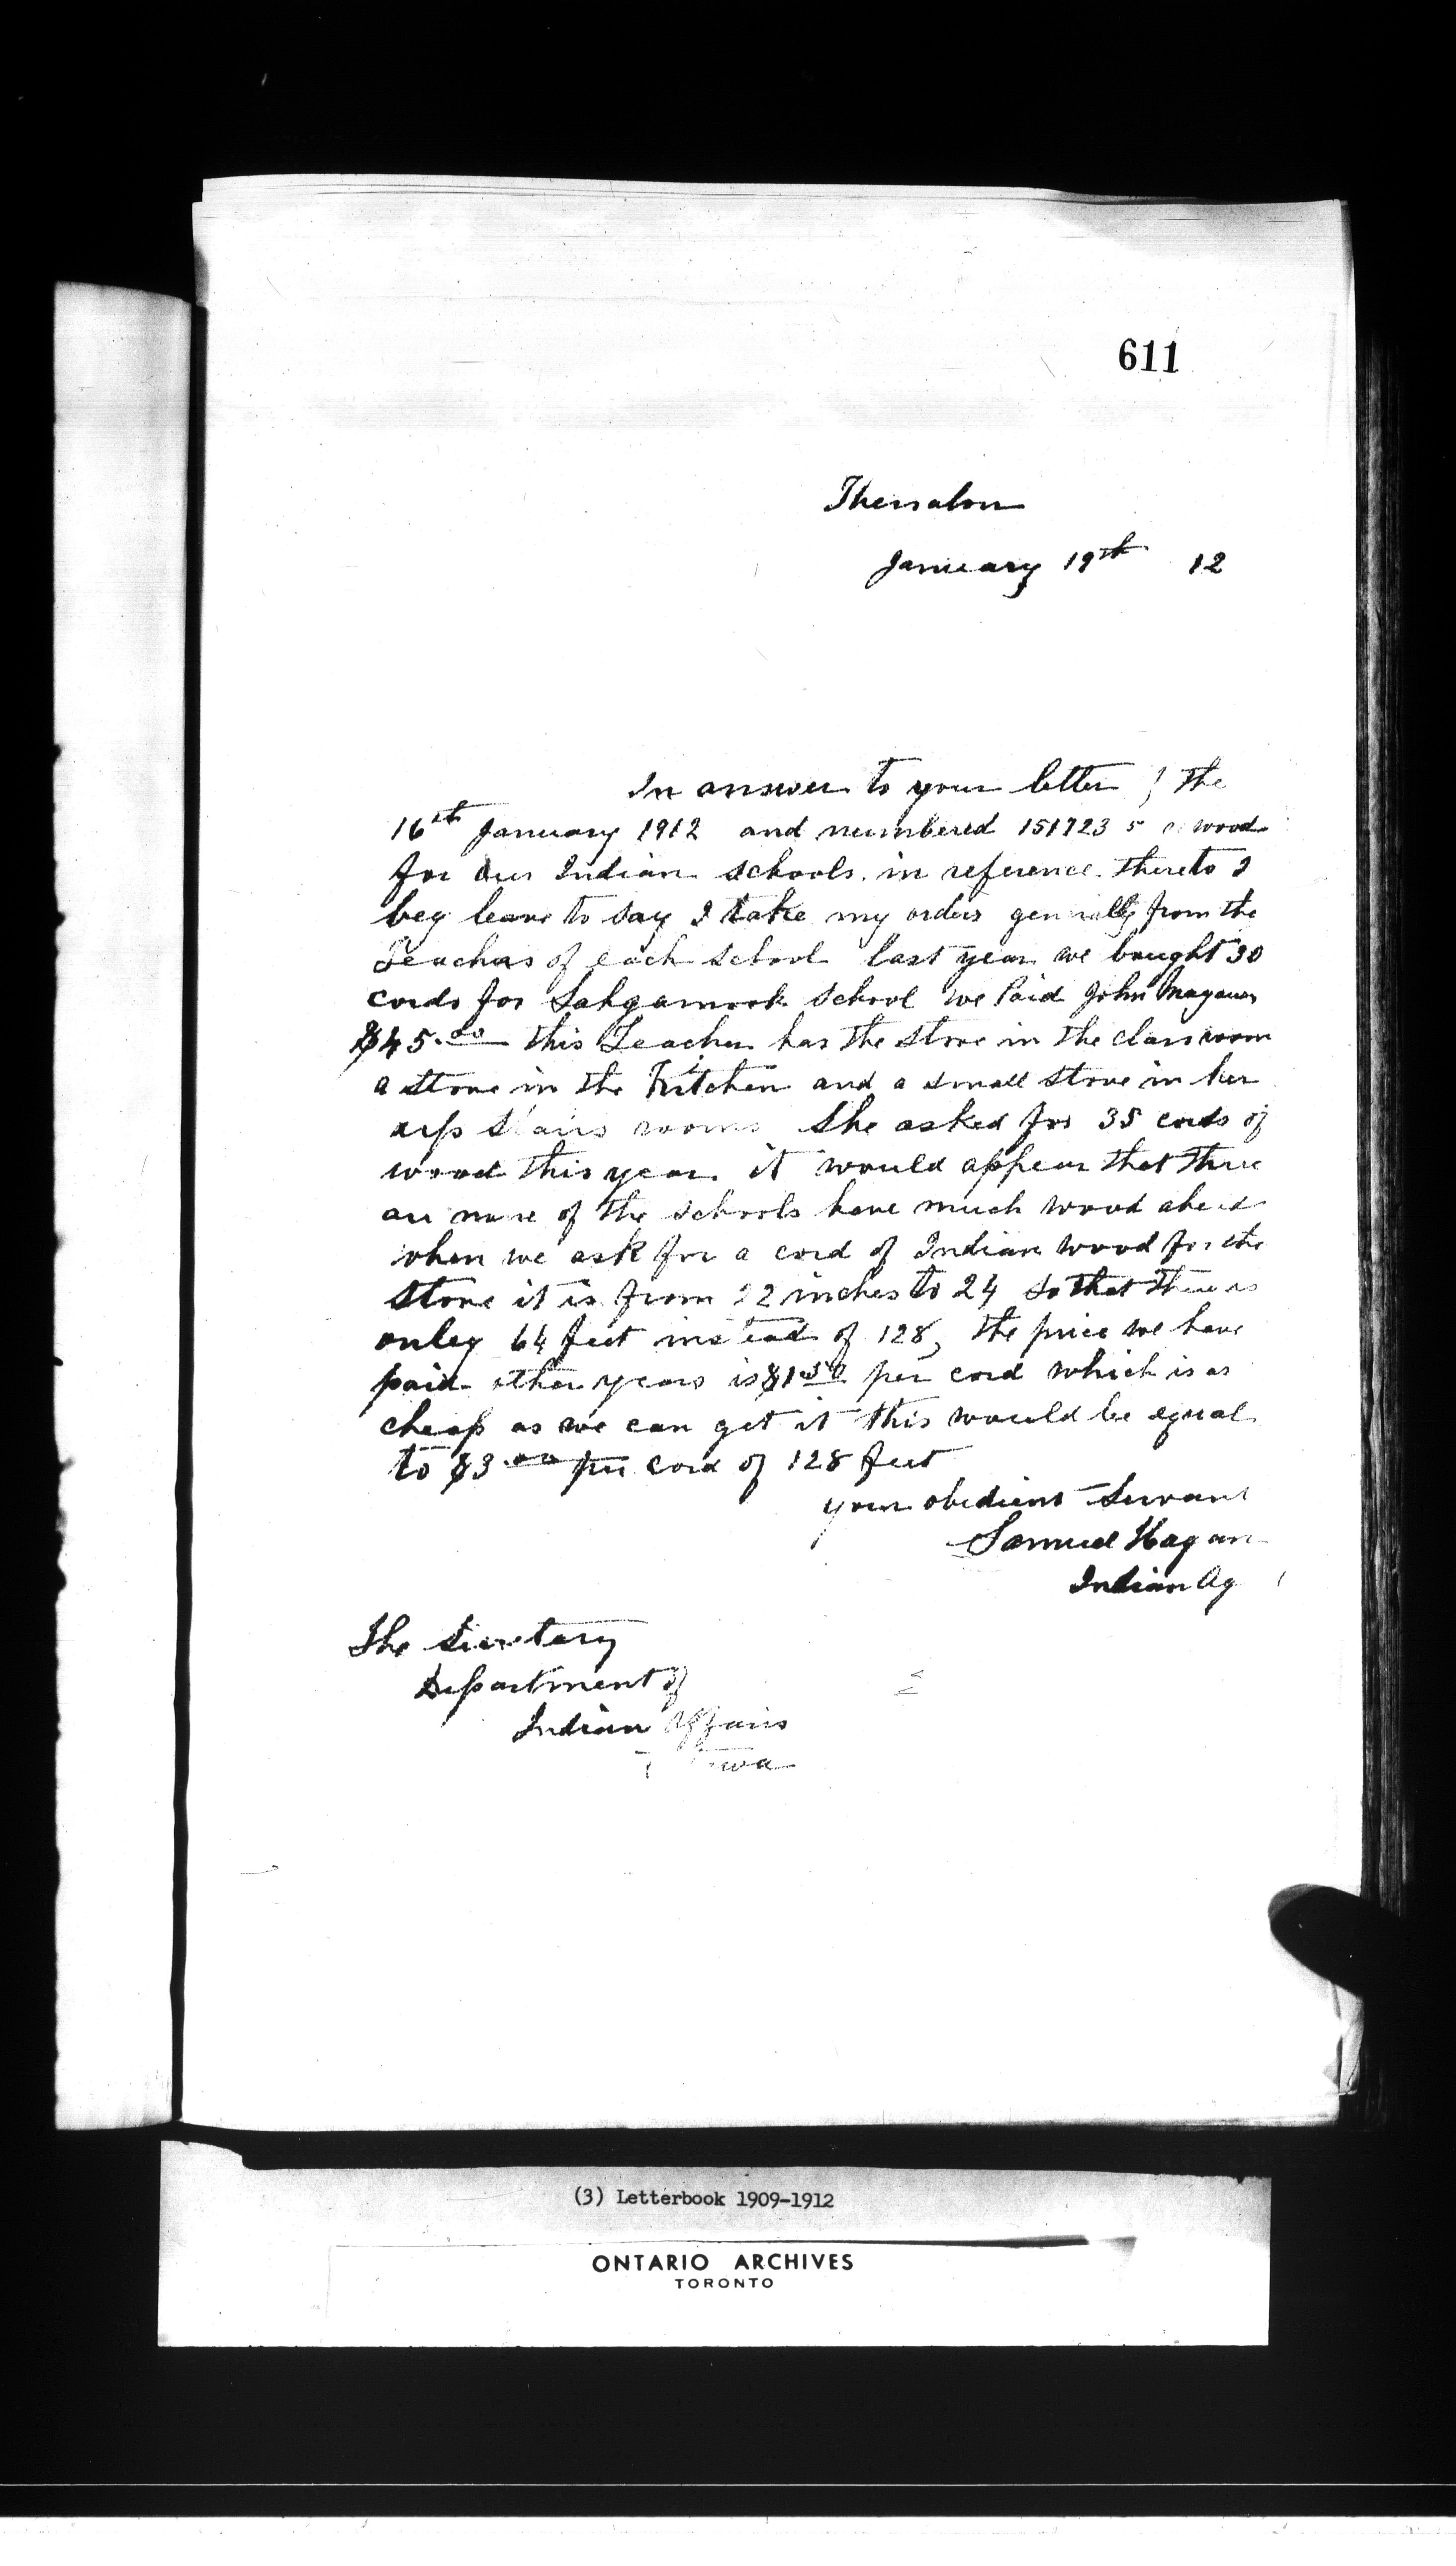 611
Thessalon
January 19th 12
In answer to your letter of the
16th January 1912 and numbered 151723 wood
for our Indian schools. in reference thereto I
beg leave to say I take my orders generally from the
Teachers of each school last year we bought 30
cords for school we Paid John
$45.00 this Teacher has the stove in the class room
a stove in the Kitchen and a small stove in her
up stairs rooms She asked for 35 cords of
wood this year. it would appear that there
are none of the schools have much wood ahead
when we ask for a cord of Indian wood for the
stove it is from 22 inches to 24 so that there is
onley 64 feet instead of 128, the price we have
paid other years is $1.50 per cord which is as
cheap as we can get it this would be equal
to $3.00 per cord of 128 feet
your obedient Servant
Samuel Hagan
Indian Ag
The Secretary
Department of
Indian Affairs
(3) Letterbook 1909-1912
ONTARIO ARCHIVES
TORONTO